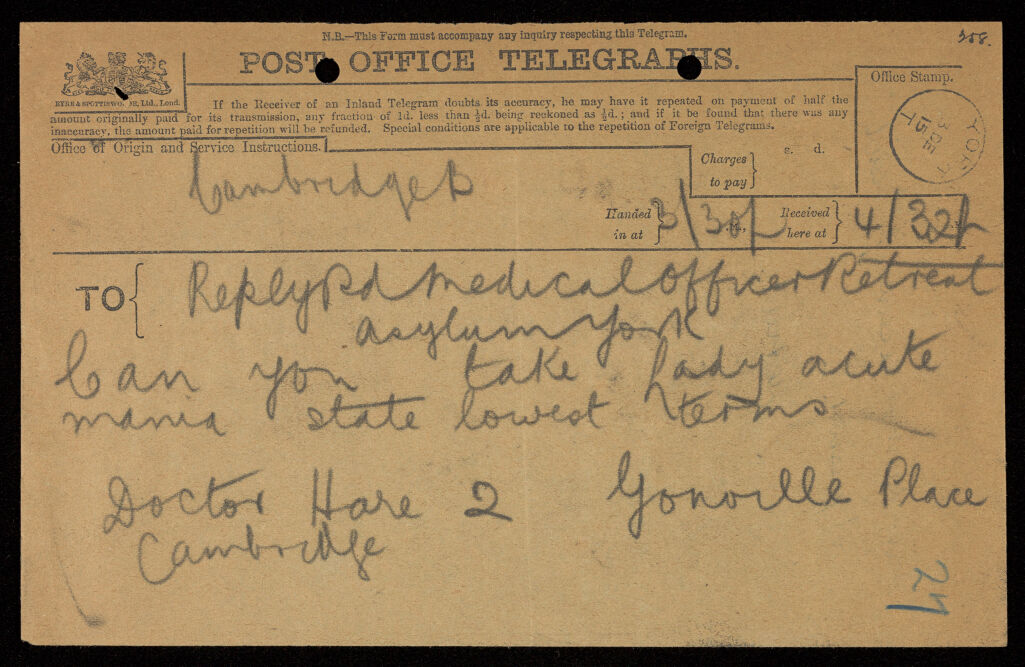 N.B.—This Form must accompany any inquiry respecting this Telegram.
358.
POST OFFICE TELEGRAPHS.
If the Receiver of an Inland Telegram doubts its accuracy, he may have it repeated on payment of half the
amount originally paid for its transmission, any fraction of 1d. less than ½d. being reckoned as ½d.; and if it be found that there was any
inaccuracy, the amount paid for repetition will be refunded. Special conditions are applicable to the repetition of Foreign Telegrams.
Office Stamp.
YORK
3 DE
15
Office of Origin and Service Instructions.
Charges
to pay
s. d.
Cambridge B
Handed
in at
3/30p
Received
here at
4/32p
TO
Reply Pd Medical Officer Retreat
Asylum York
Can you take lady acute
mania state lowest terms
Doctor Hare 2 Gonville Place
Cambridge
27